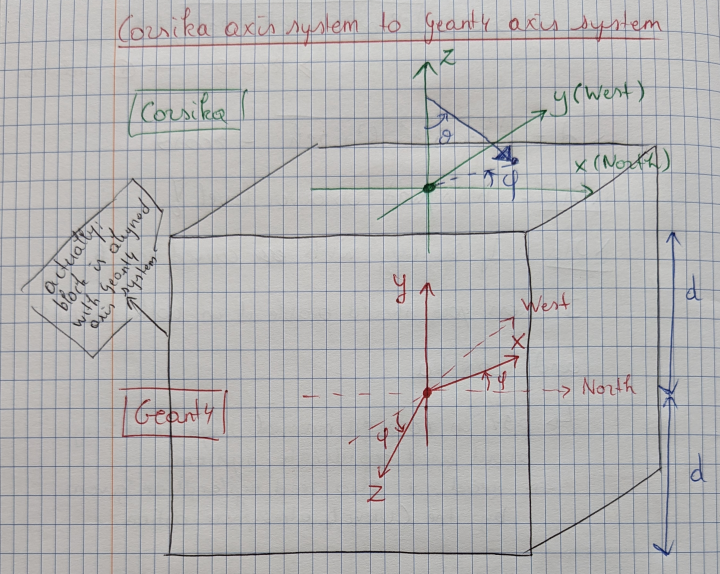 Corsika axis system to Geant4 axis system
Corsika
z
y (West)
θ
x (North)
φ
actually:
block is aligned
with Geant4
axis system
y
West
x
φ
North
Geant4
φ
z
d
d